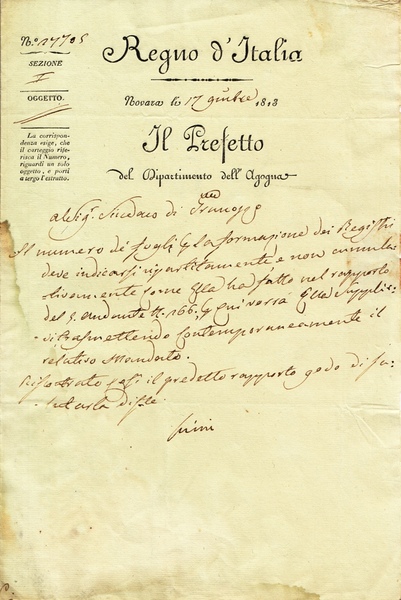 N.° 17705
SEZIONE
I
OGGETTO.
La corrispon-
denza esige, che
il carteggio rife-
risca il Numero,
riguardi un solo
oggetto, e porti
a tergo l'estratto.
Regno d'Italia
Novara li 17 1813
Il Prefetto
del Dipartimento dell'Agogna
al Sig. Sindaco di
Il numero de' fogli la formazione dei Registri
deve indicarsi ripartitamente, e non cumula-
tivamente come Ella ha fatto nel rapporto
del 5. andante N. 166.
trasmettendo contemporaneamente il
relativo Mandato.
il predetto rapporto godo di sa-
lutarla